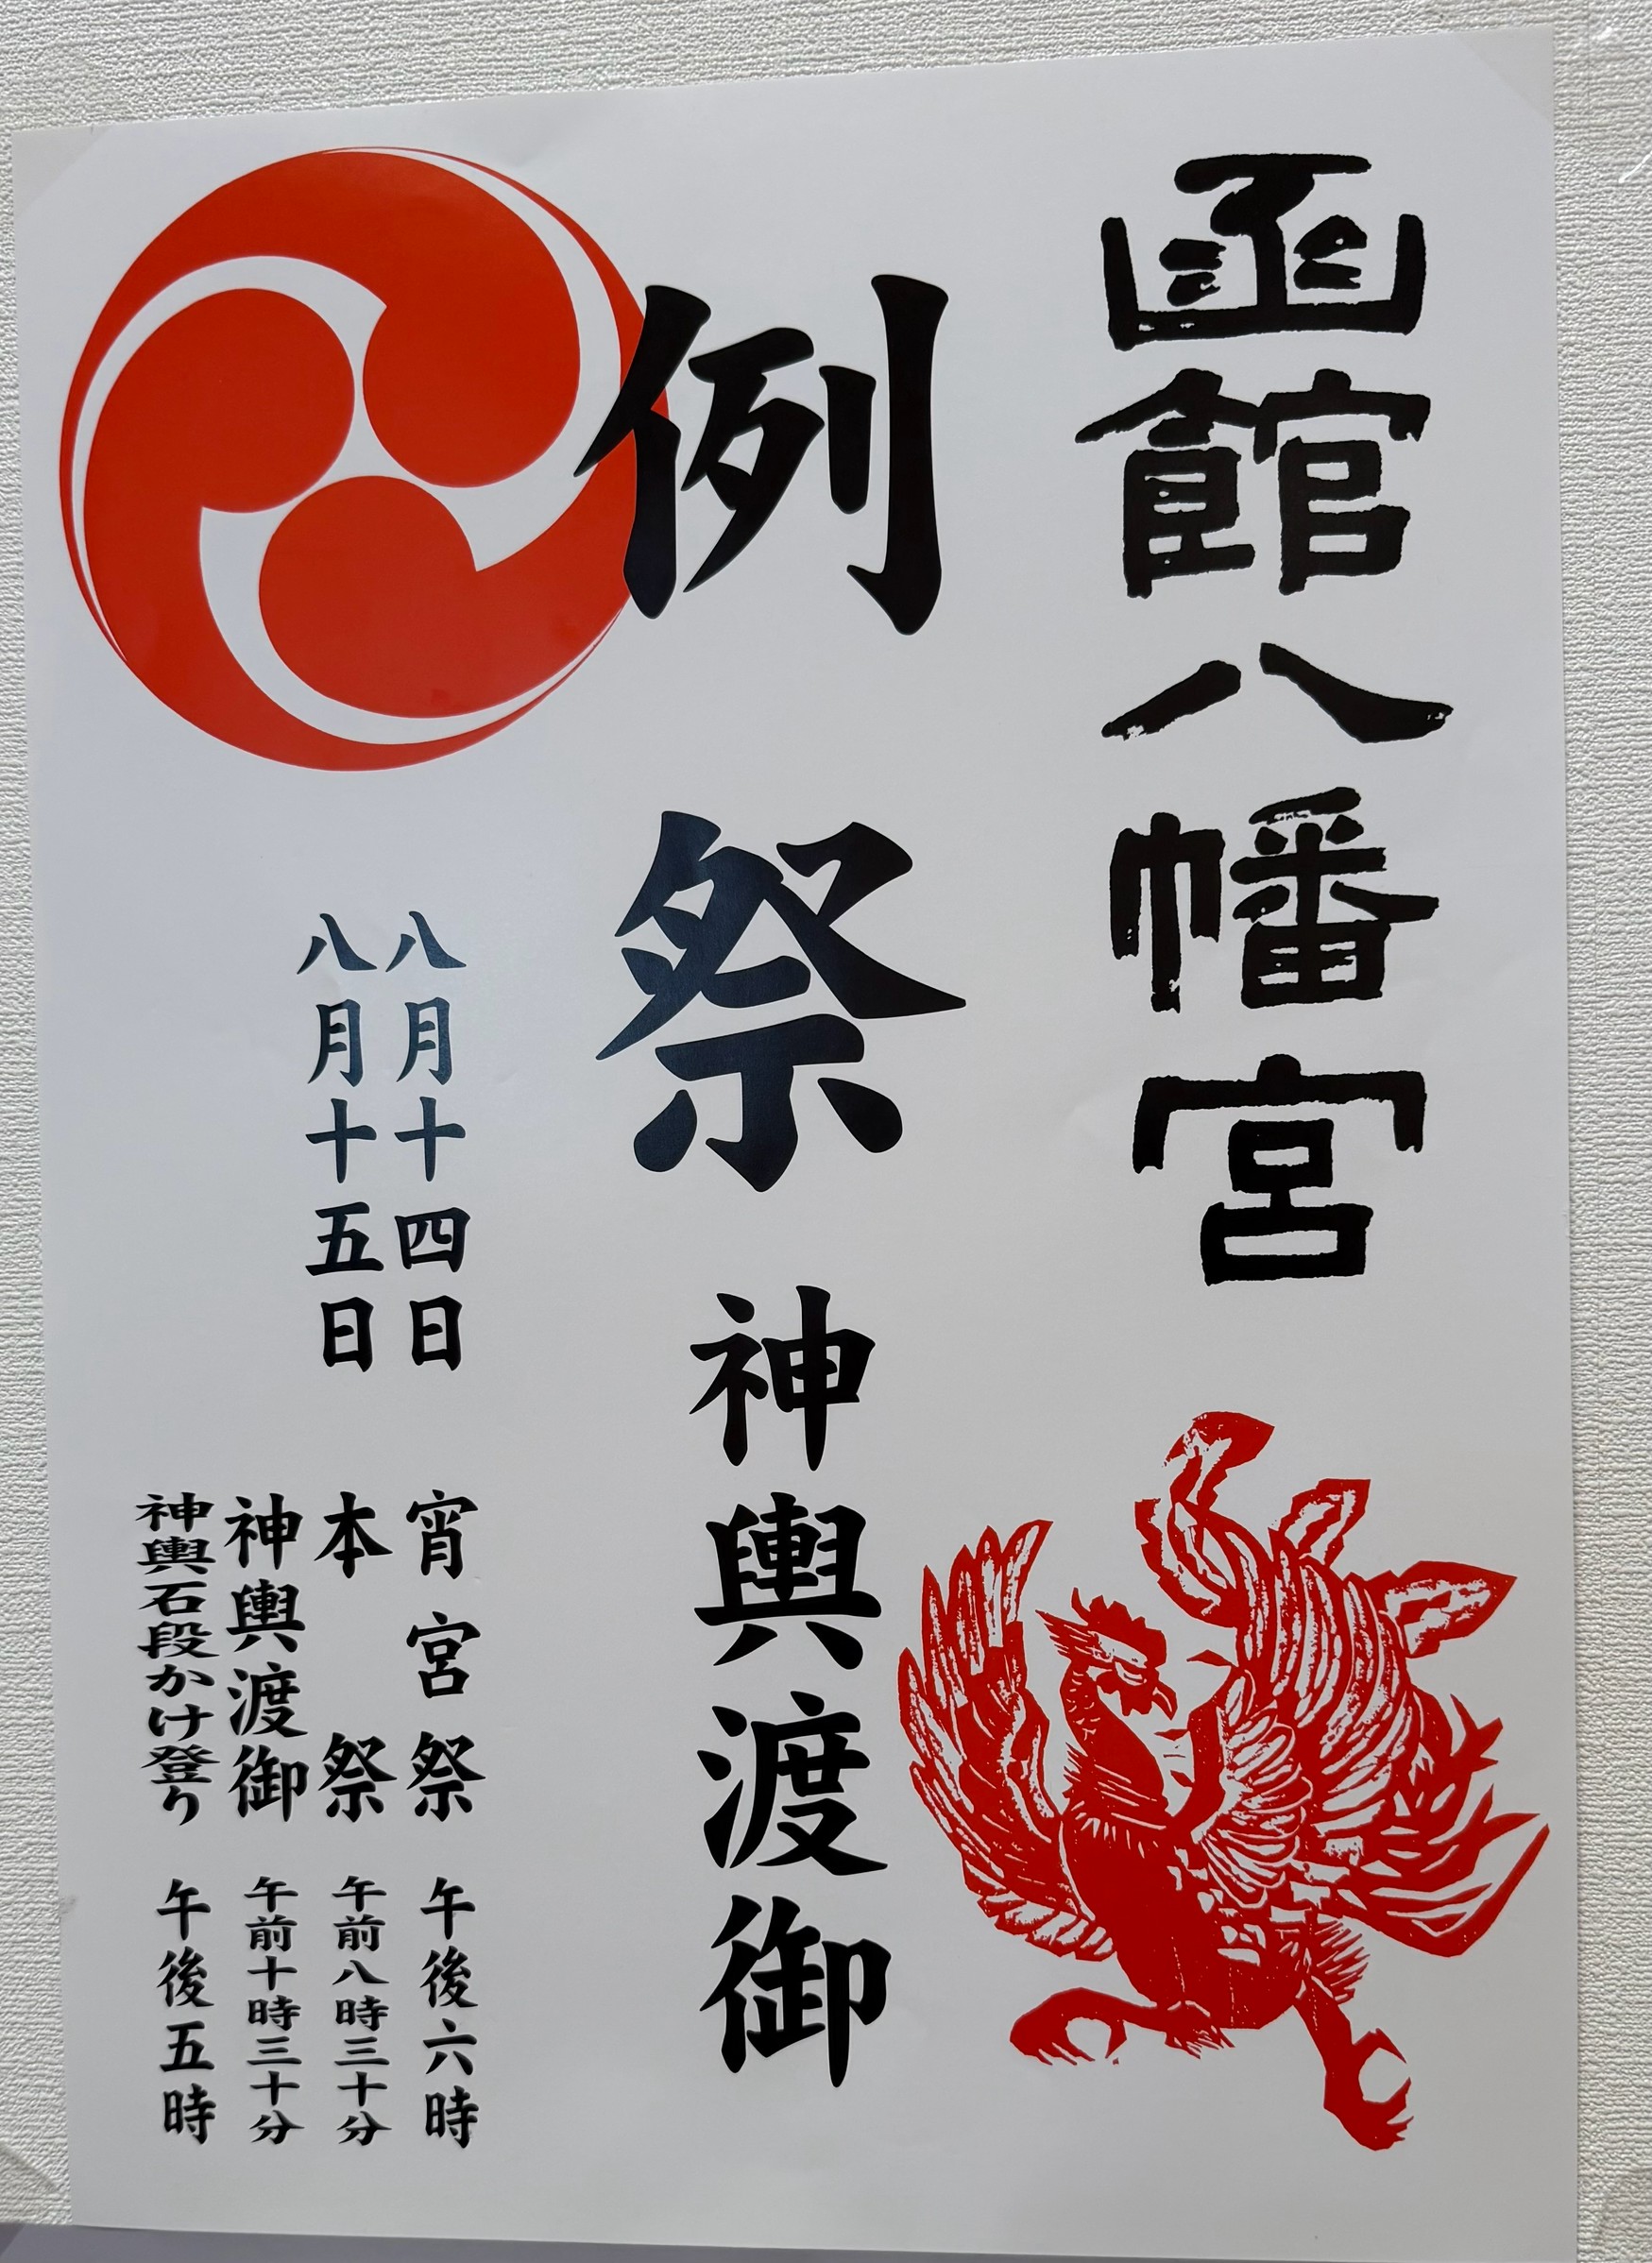 函館八幡宮
例祭 神輿渡御
八月十四日 宵宮祭 午後六時
八月十五日 本祭 午前八時三十分
神輿渡御 午前十時三十分
神輿石段かけ登り 午後五時